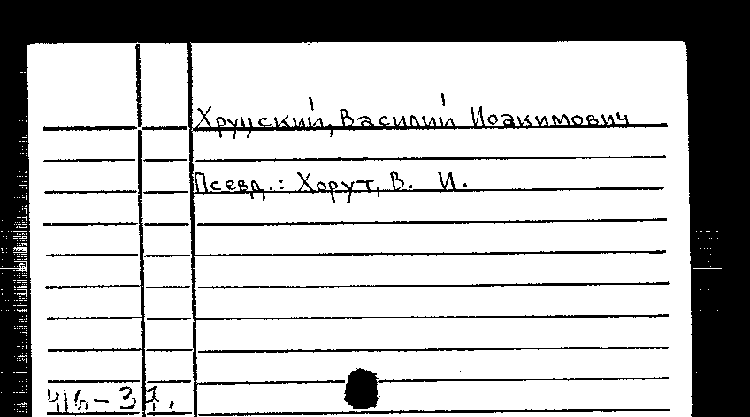 Хруцский, Василий Иоакимович
Псевд.: Хорут, В. И.